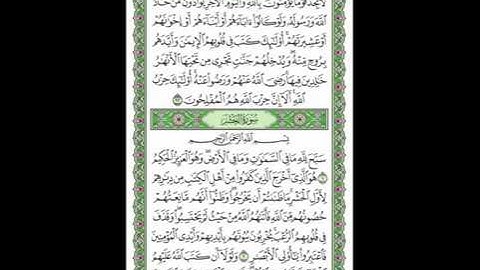 لَّا تَجِدُ قَوْمًا يُؤْمِنُونَ بِٱللَّهِ وَٱلْيَوْمِ ٱلْءَاخِرِ يُوَآدُّونَ مَنْ حَآدَّ
ٱللَّهَ وَرَسُولَهُۥ وَلَوْ كَانُوٓا۟ ءَابَآءَهُمْ أَوْ أَبْنَآءَهُمْ أَوْ إِخْوَٰنَهُمْ
أَوْ عَشِيرَتَهُمْ ۚ أُو۟لَٰٓئِكَ كَتَبَ فِى قُلُوبِهِمُ ٱلْإِيمَٰنَ وَأَيَّدَهُم
بِرُوحٍ مِّنْهُ ۖ وَيُدْخِلُهُمْ جَنَّٰتٍ تَجْرِى مِن تَحْتِهَا ٱلْأَنْهَٰرُ
خَٰلِدِينَ فِيهَا ۚ رَضِىَ ٱللَّهُ عَنْهُمْ وَرَضُوا۟ عَنْهُ ۚ أُو۟لَٰٓئِكَ حِزْبُ
ٱللَّهِ ۚ أَلَآ إِنَّ حِزْبَ ٱللَّهِ هُمُ ٱلْمُفْلِحُونَ ٢٢
سُورَةُ الحَشْرِ
بِسْمِ ٱللَّهِ ٱلرَّحْمَٰنِ ٱلرَّحِيمِ
سَبَّحَ لِلَّهِ مَا فِى ٱلسَّمَٰوَٰتِ وَمَا فِى ٱلْأَرْضِ ۖ وَهُوَ ٱلْعَزِيزُ ٱلْحَكِيمُ
١ هُوَ ٱلَّذِىٓ أَخْرَجَ ٱلَّذِينَ كَفَرُوا۟ مِنْ أَهْلِ ٱلْكِتَٰبِ مِن دِيَٰرِهِمْ
لِأَوَّلِ ٱلْحَشْرِ ۚ مَا ظَنَنتُمْ أَن يَخْرُجُوا۟ ۖ وَظَنُّوٓا۟ أَنَّهُم مَّانِعَتُهُمْ
حُصُونُهُم مِّنَ ٱللَّهِ فَأَتَىٰهُمُ ٱللَّهُ مِنْ حَيْثُ لَمْ يَحْتَسِبُوا۟ ۖ وَقَذَفَ
فِى قُلُوبِهِمُ ٱلرُّعْبَ ۚ يُخْرِبُونَ بُيُوتَهُم بِأَيْدِيهِمْ وَأَيْدِى ٱلْمُؤْمِنِينَ
فَٱعْتَبِرُوا۟ يَٰٓأُو۟لِى ٱلْأَبْصَٰرِ ٢ وَلَوْلَآ أَن كَتَبَ ٱللَّهُ عَلَيْهِمُ